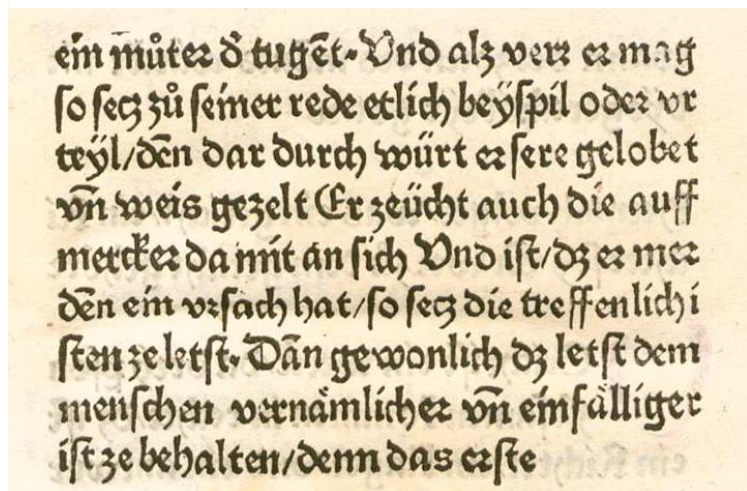 ein můter d̕ tugēt. Vnd alz verr er mag
so secz zů seiner rede etlich beÿspil oder vr
teÿl/dēn dar durch würt er sere gelobet
vn̄ weis gezelt Er zeücht auch die auff
mercker da mit an sich Vnd ist/dz er mer
dēn ein vrsach hat/so secz die treffenlich i
sten ze letst. Dān gewonlich dz letst dem
menschen vernämlicher vn̄ einfälliger
ist ze behalten/denn das erste